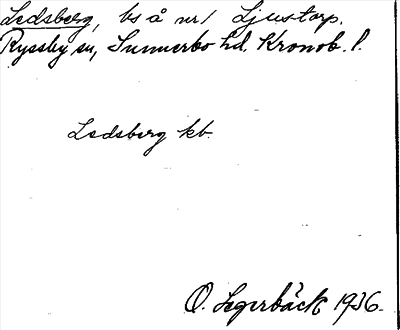 Ledsberg, bs å nr 1 Ljustorp.
Ryssby sn, Sunnerbo hd. Kronob. l.
Ledsberg kb.
O. Segerbäck 1936.